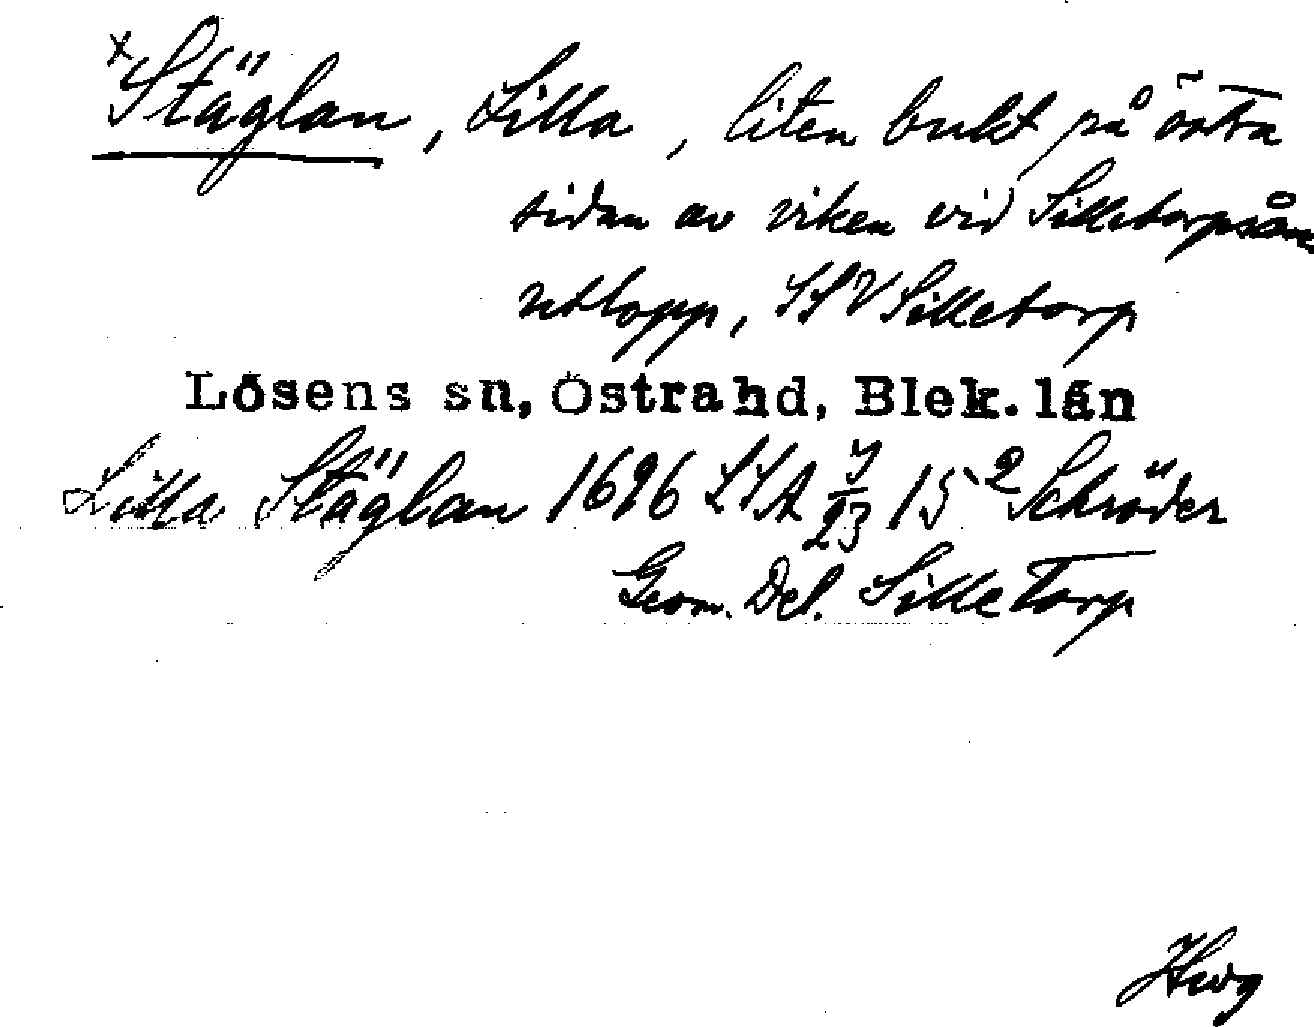 x Stäglan, Lilla, liten bukt på östra
sidan av viken vid Silletorpsåns
utlopp, SSV Silletorp
Lösens sn, Östra hd, Blek. län
Lilla Stäglan 1696 LSA 7/23 15² Schröder
Geom. Del. Silletorp